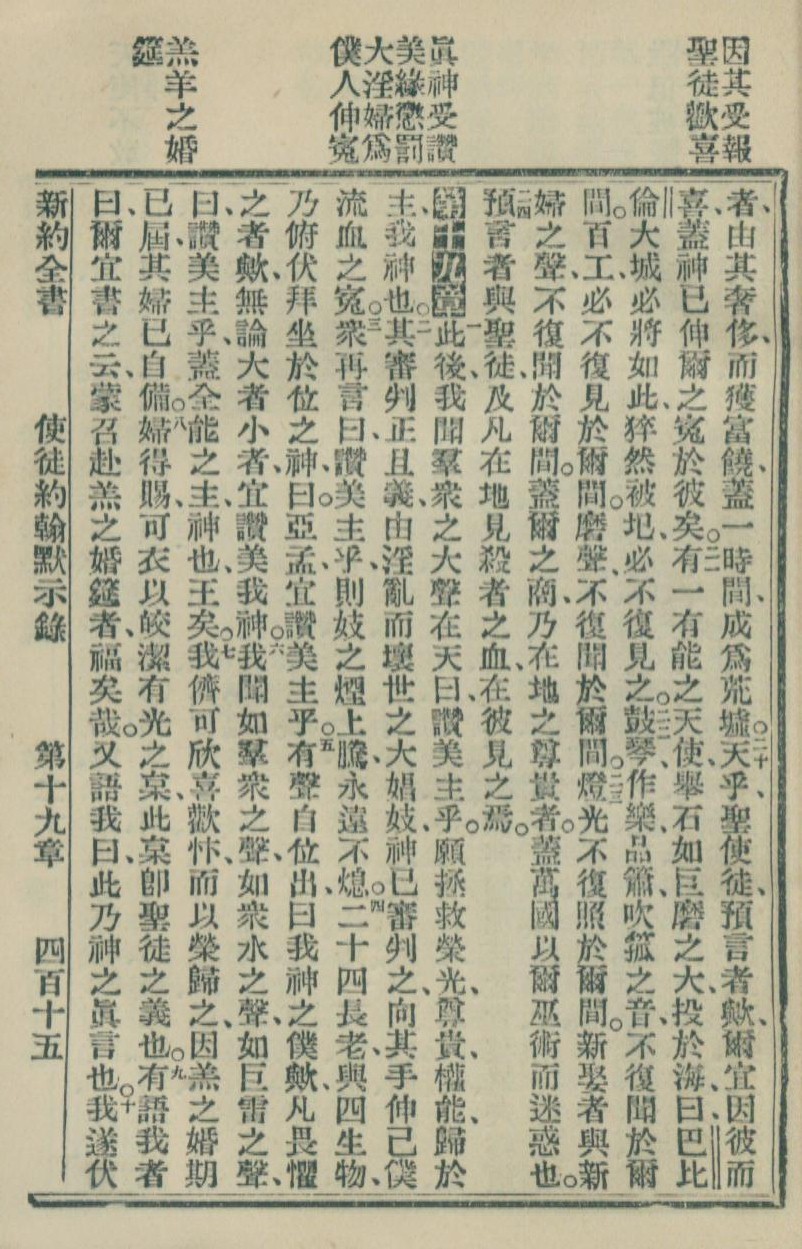 因其受報
聖徒歡喜
眞神受讚
美緣懲罰
大淫婦爲
僕人伸寃
羔羊之婚
筵
者、由其奢侈、而獲富饒、蓋一時間、成爲荒墟。二十天乎、聖使徒、預言者歟、爾宜因彼而
喜、蓋神已伸爾之寃於彼矣。二一有一有能之天使、舉石如巨磨之大、投於海、曰、巴比
倫大城、必將如此、猝然被圮、必不復見之。二二鼓琴、作樂、品簫、吹箛之音、不復聞於爾
間。百工、必不復見於爾間。磨聲、不復聞於爾間。二三燈光不復照於爾間。新娶者與新
婦之聲、不復聞於爾間。蓋爾之商、乃在地之尊貴者。蓋萬國以爾巫術而迷惑也。
二四預言者與聖徒、及凡在地見殺者之血、在彼見之焉。
第十九章一此後、我聞羣衆之大聲在天曰、讚美主乎。願拯救榮光、尊貴、權能、歸於
主、我神也。二其審判正且義、由淫亂而壞世之大娼妓、神已審判之、向其手伸己僕
流血之寃。三衆再言曰、讚美主乎、則妓之煙上騰、永遠不熄。四二十四長老、與四生物、
乃俯伏拜坐於位之神、曰、亞孟、宜讚美主乎。五有聲自位出、曰、我神之僕歟、凡畏懼
之者歟、無論大者小者、宜讚美我神。六我聞如羣衆之聲、如衆水之聲、如巨雷之聲、
曰、讚美主乎、蓋全能之主、神也、王矣。七我儕可欣喜、歡忭、而以榮歸之、因羔之婚期
已屆、其婦已自備。八婦得賜、可衣以皎潔有光之枲、此枲卽聖徒之義也。九有語我者
曰、爾宜書之云、蒙召赴羔之婚筵者、福矣哉。又語我曰、此乃神之眞言也。十我遂伏
新約全書　使徒約翰默示錄　第十九章　四百十五